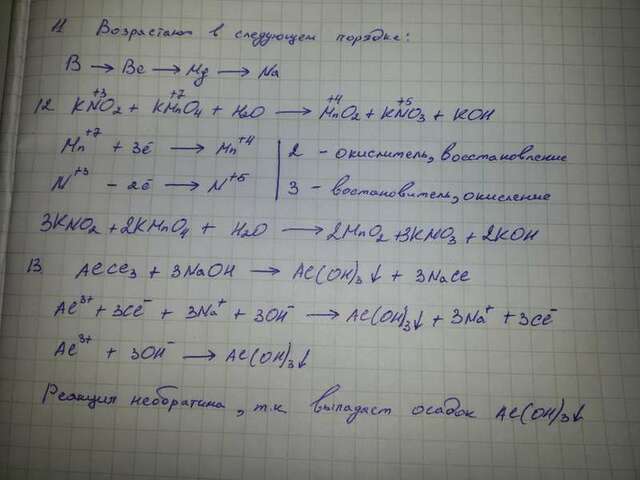 11 Возрастают в следующем порядке:
B → Be → Mg → Na
12. KN⁺³O₂ + KMn⁺⁷O₄ + H₂O → Mn⁺⁴O₂ + KN⁺⁵O₃ + KOH
Mn⁺⁷ + 3ē → Mn⁺⁴ | 2 - окислитель, восстановление
N⁺³ - 2ē → N⁺⁵ | 3 - востановитель, окисление
3KNO₂ + 2KMnO₄ + H₂O → 2MnO₂ + 3KNO₃ + 2KOH
13. AlCl₃ + 3NaOH → Al(OH)₃↓ + 3NaCl
Al³⁺ + 3Cl⁻ + 3Na⁺ + 3OH⁻ → Al(OH)₃↓ + 3Na⁺ + 3Cl⁻
Al³⁺ + 3OH⁻ → Al(OH)₃↓
Реакция необратима, т.к выпадаст осадок Al(OH)₃↓